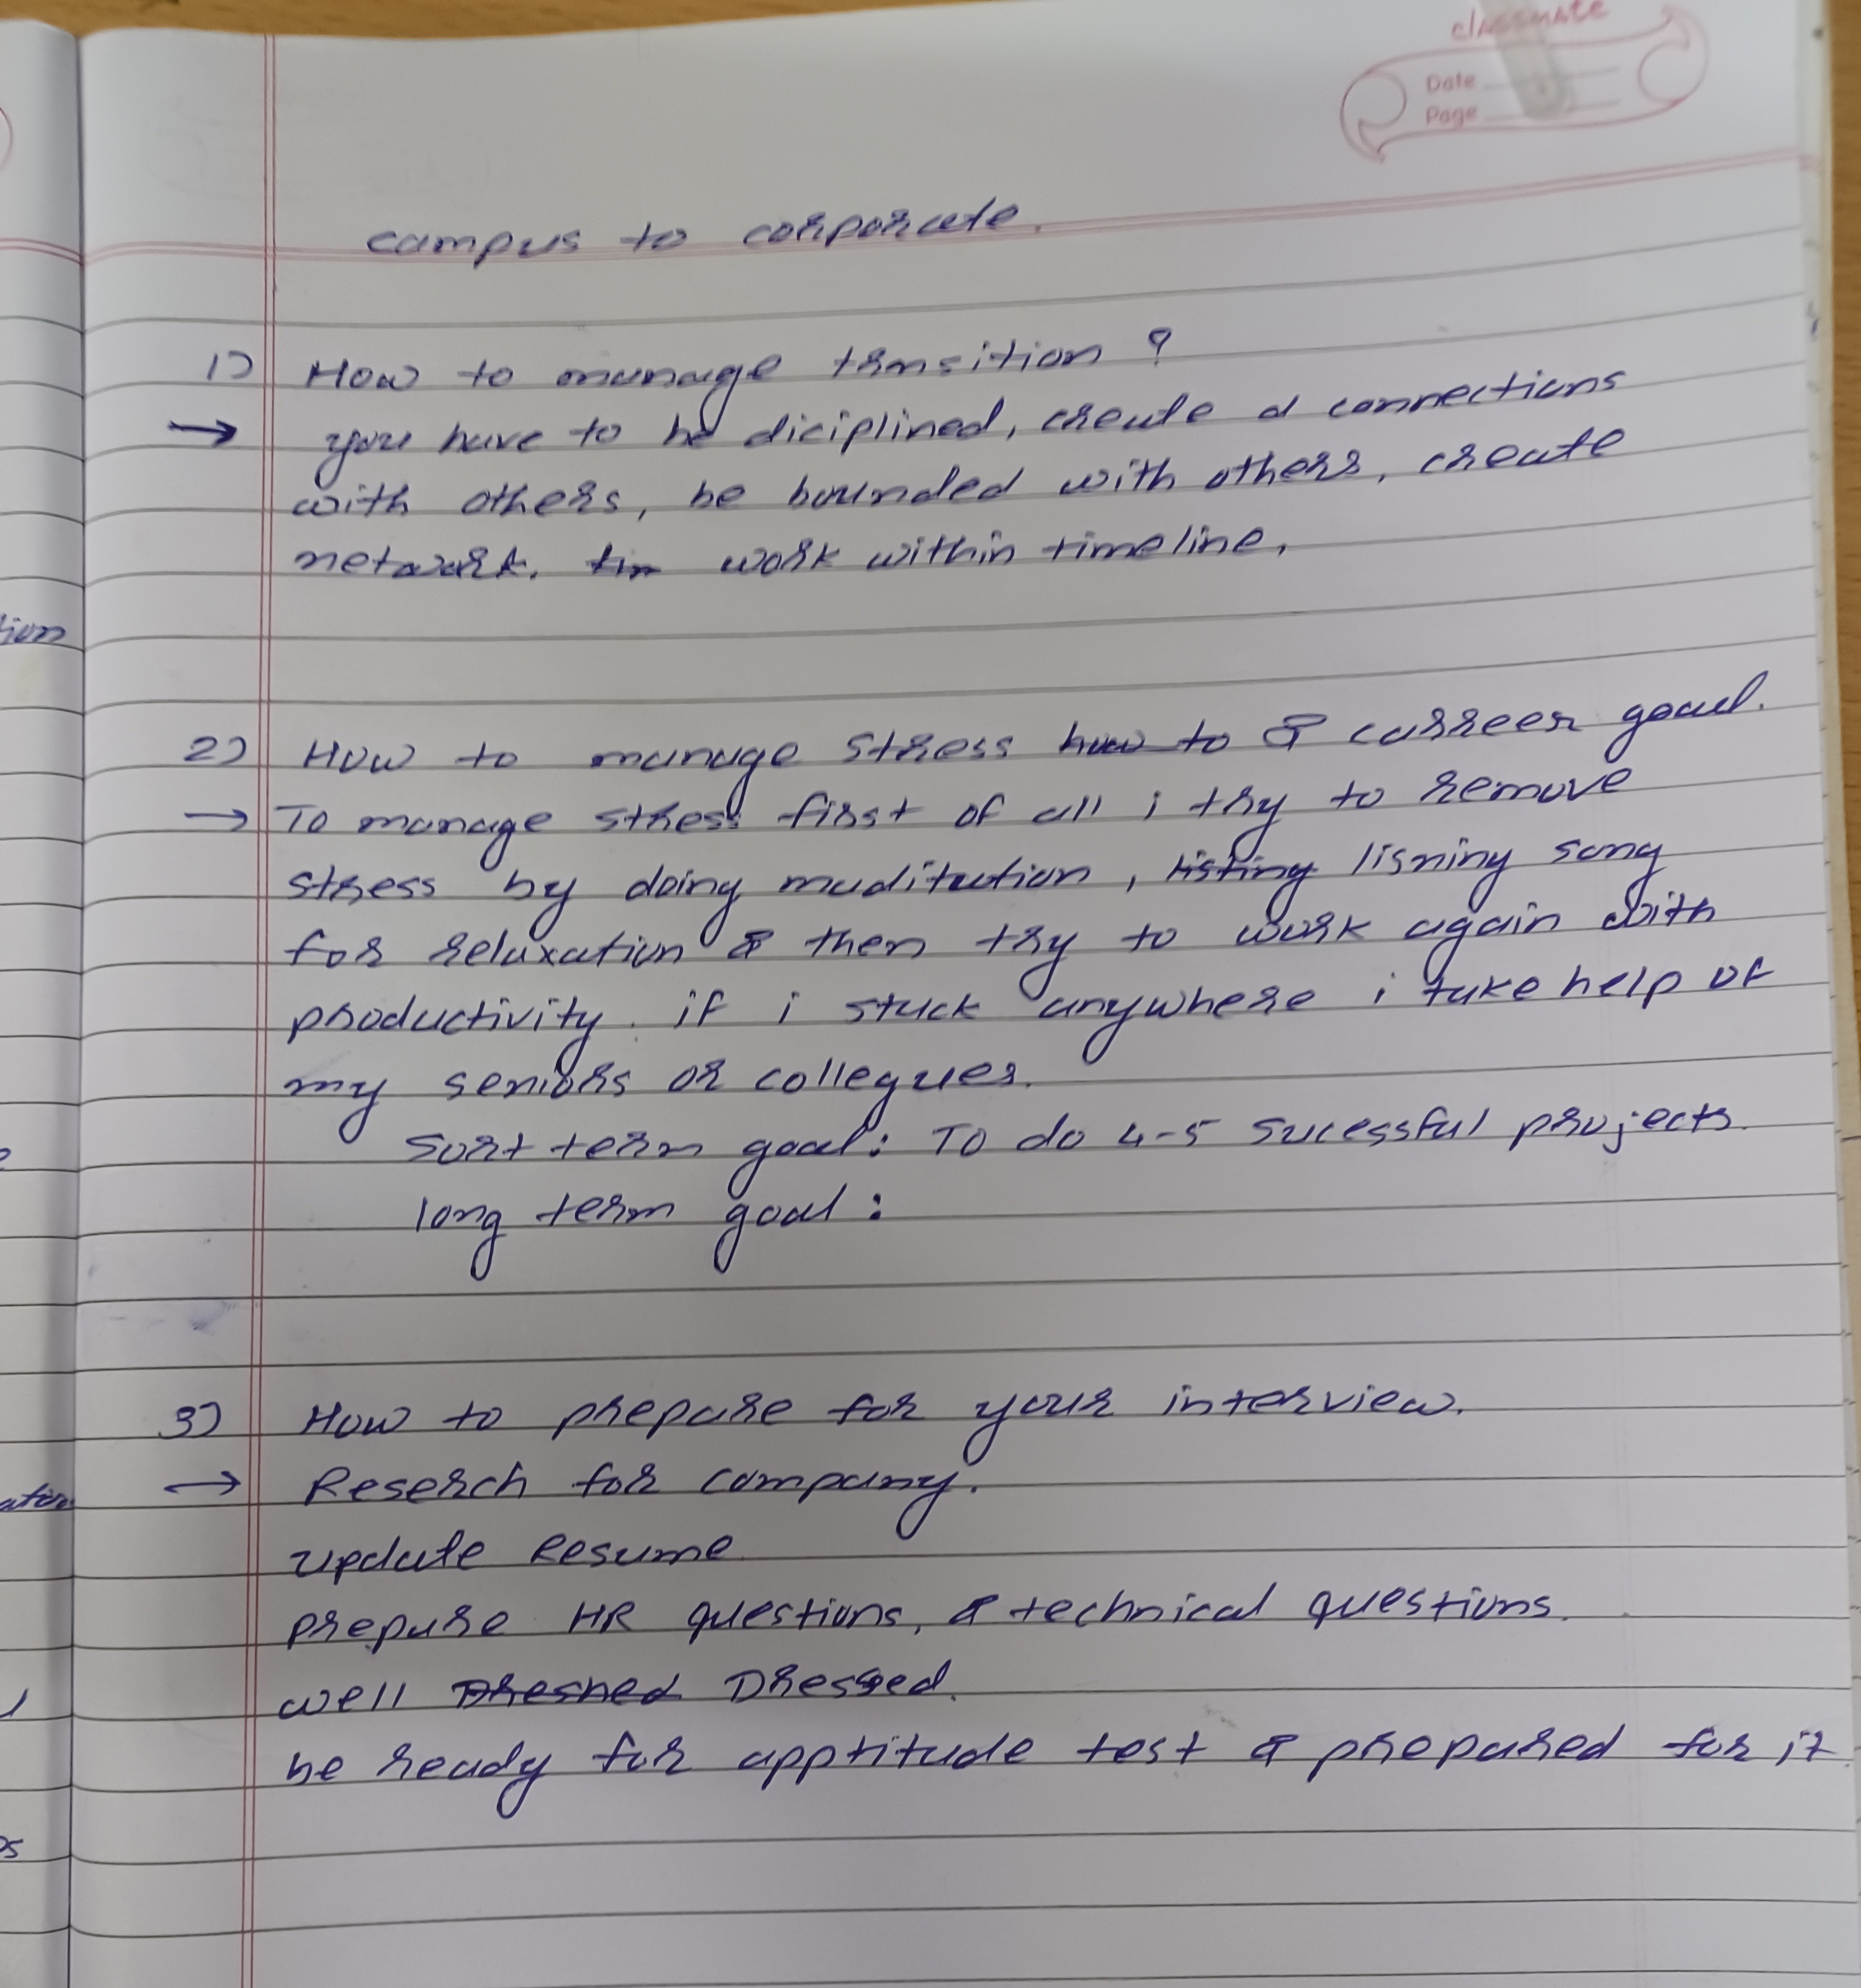 classmate
Date
Page
campus to corporate.
1) How to manage trnsition ?
→ you have to be diciplined, create a connections
with others, be bounded with others, create
network. work within timeline.
2) How to manage stress & carreer goal.
→ To manage stress first of all i try to remove
stress by doing muditation, lisning song
for relaxation & then try to work again with
productivity. if i stuck anywhere i take help of
my seniors or collegues.
Sort term goal : To do 4-5 sucessful projects.
long term goal :
3) How to prepare for your interview.
→ Reserch for company.
update Resume
prepare HR questions, & technical questions.
well Dressed.
be ready for apptitude test & prepared for it